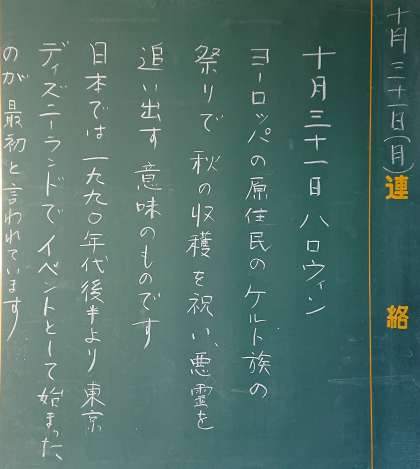 十月三十一日(月)
連絡
十月三十一日 ハロウィン
ヨーロッパの原住民のケルト族の
祭りで 秋の収穫を祝い、悪霊を
追い出す意味のものです
日本では一九九〇年代後半より東京
ディズニーランドでイベントとして始まった、
のが最初と言われています